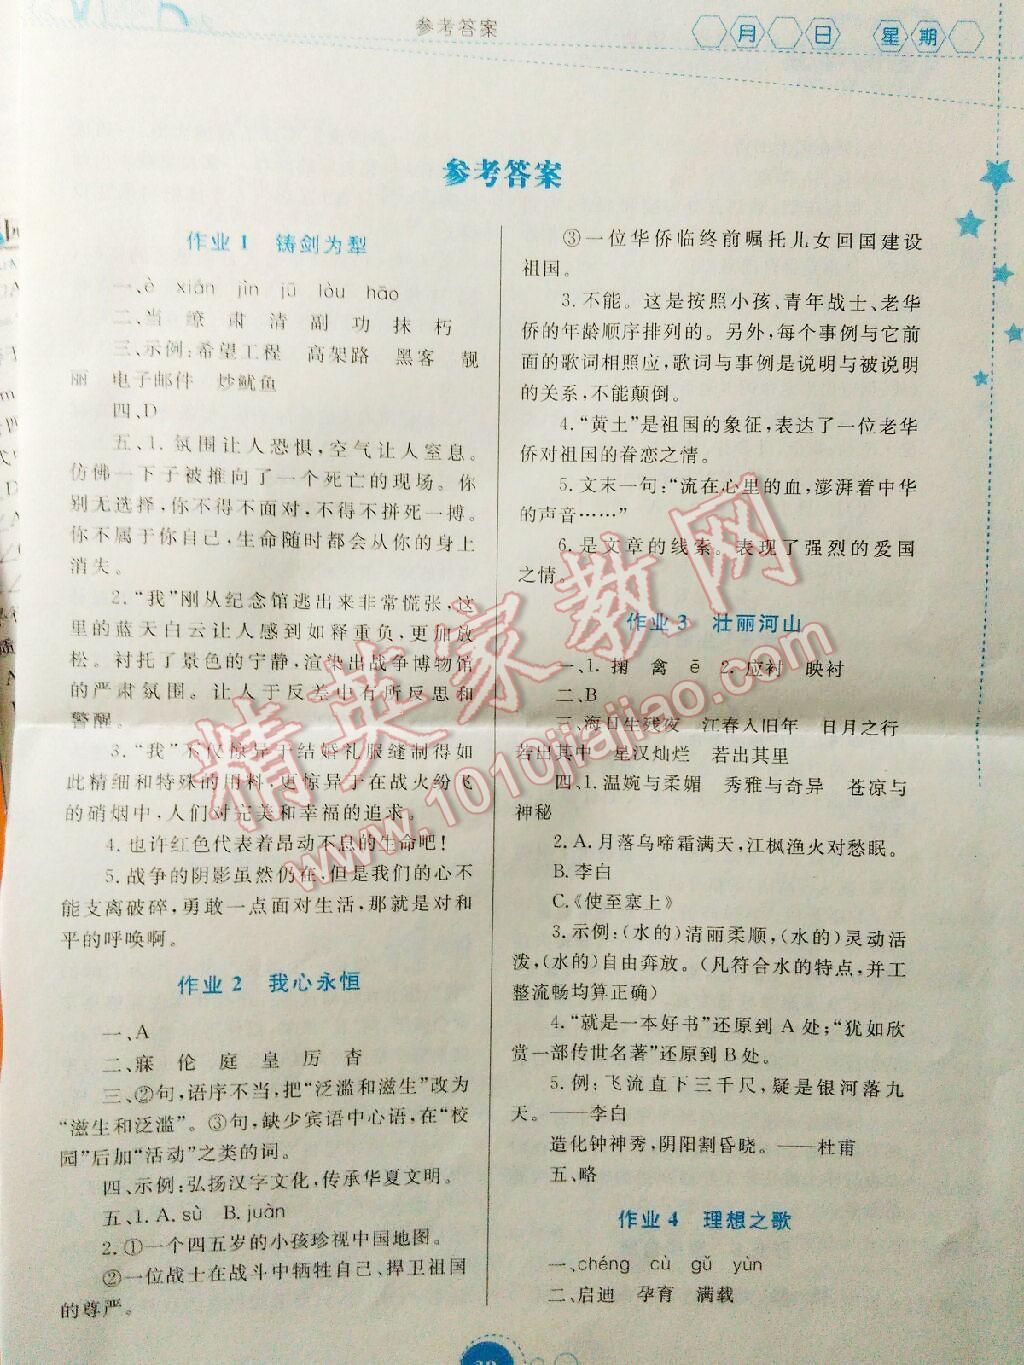 参考答案
月 日 星期
参考答案
作业1 铸剑为犁
一、è xiǎn jìn jū lòu hāo
二、当 暸 肃 清 副 功 抹 朽
三、示例:希望工程 高架路 黑客 靓
丽 电子邮件 炒鱿鱼
四、D
五、1. 氛围让人恐惧,空气让人窒息。
仿佛一下子被推向了一个死亡的现场。你
别无选择,你不得不面对,不得不拼死一搏。
你不属于你自己,生命随时都会从你的身上
消失。
2.“我”刚从纪念馆逃出来非常慌张,这
里的蓝天白云让人感到如释重负,更加放
松。衬托了景色的宁静,渲染出战争博物馆
的严肃氛围。让人于反差中有所反思和
警醒。
3.“我”不仅惊异于结婚礼服缝制得如
此精细和特殊的用料,更惊异于在战火纷飞
的硝烟中,人们对完美和幸福的追求。
4. 也许红色代表着昂动不息的生命吧!
5. 战争的阴影虽然仍在,但是我们的心不
能支离破碎,勇敢一点面对生活,那就是对和
平的呼唤啊。
作业2 我心永恒
一、A
二、寐 伦 庭 皇 厉 杳
三、②句,语序不当,把“泛滥和滋生”改为
“滋生和泛滥”。③句,缺少宾语中心语,在“校
园”后加“活动”之类的词。
四、示例:弘扬汉字文化,传承华夏文明。
五、1. A. sù B. juàn
2. ①一个四五岁的小孩珍视中国地图。
②一位战士在战斗中牺牲自己、捍卫祖国
的尊严。
③一位华侨临终前嘱托儿女回国建设
祖国。
3. 不能。这是按照小孩、青年战士、老华
侨的年龄顺序排列的。另外,每个事例与它前
面的歌词相照应,歌词与事例是说明与被说明
的关系,不能颠倒。
4.“黄土”是祖国的象征,表达了一位老华
侨对祖国的眷恋之情。
5. 文末一句:“流在心里的血,澎湃着中华
的声音……”
6. 是文章的线索。表现了强烈的爱国
之情。
作业3 壮丽河山
一、1. 掬 禽 ē 2. 应衬 映衬
二、B
三、海日生残夜 江春入旧年 日月之行
若出其中 星汉灿烂 若出其里
四、1. 温婉与柔媚 秀雅与奇异 苍凉与
神秘
2. A. 月落乌啼霜满天,江枫渔火对愁眠。
B. 李白
C.《使至塞上》
3. 示例:(水的)清丽柔顺,(水的)灵动活
泼,(水的)自由奔放。(凡符合水的特点,并工
整流畅均算正确)
4.“就是一本好书”还原到A处;“犹如欣
赏一部传世名著”还原到B处。
5. 例:飞流直下三千尺,疑是银河落九
天。——李白
造化钟神秀,阴阳割昏晓。——杜甫
五、略
作业4 理想之歌
一、chéng cù gǔ yùn
二、启迪 孕育 满载
精英家教网
www.1010jiajiao.com